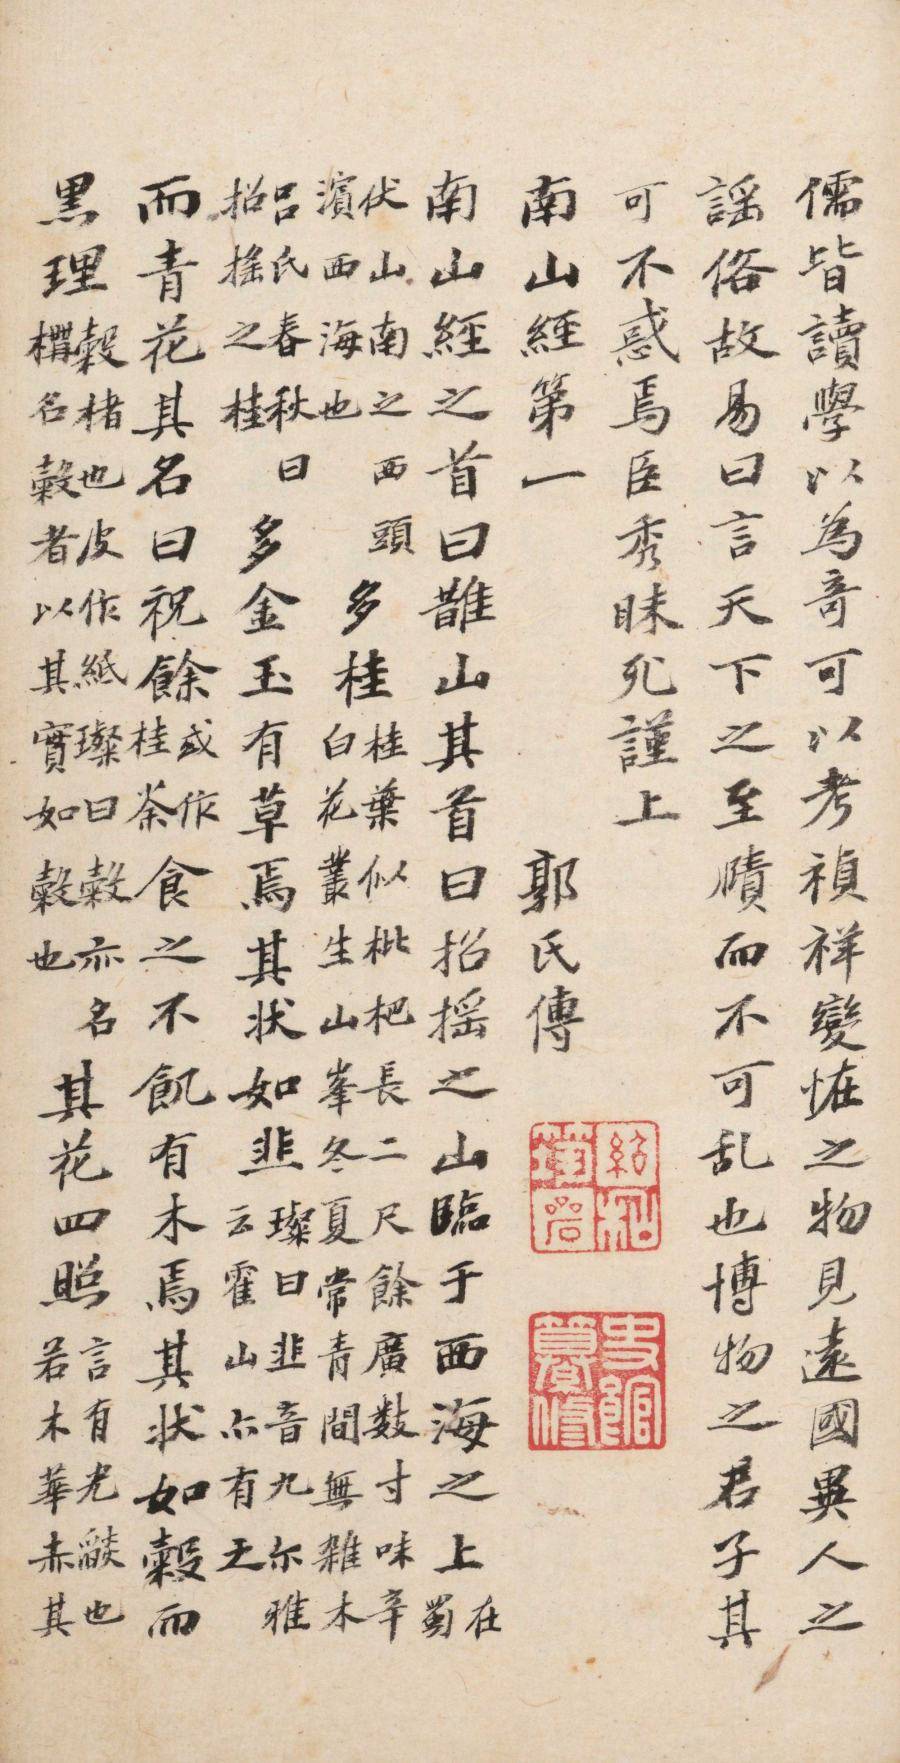 儒皆讀學以為奇可以考禎祥變恠之物見遠國異人之
謡俗故易曰言天下之至賾而不可乱也博物之君子其
可不惑焉臣秀昧死謹上
南山經第一
郭氏傳
南山經之首曰䧿山其首曰招摇之山臨于西海之上在蜀
伏山南之西頭濱西海也多桂桂葉似枇杷長二尺餘廣數寸味辛白花叢生山峯冬夏常青間無雜木
吕氏春秋曰招摇之桂多金玉有草焉其状如韭璨曰韭音九尒雅云霍山亦有之
而青花其名曰祝餘或作桂荼食之不飢有木焉其状如榖而
黒理榖楮也皮作紙璨曰榖亦名構名榖者以其實如榖也其花四照言有光燄也若木華赤其
史館纂修